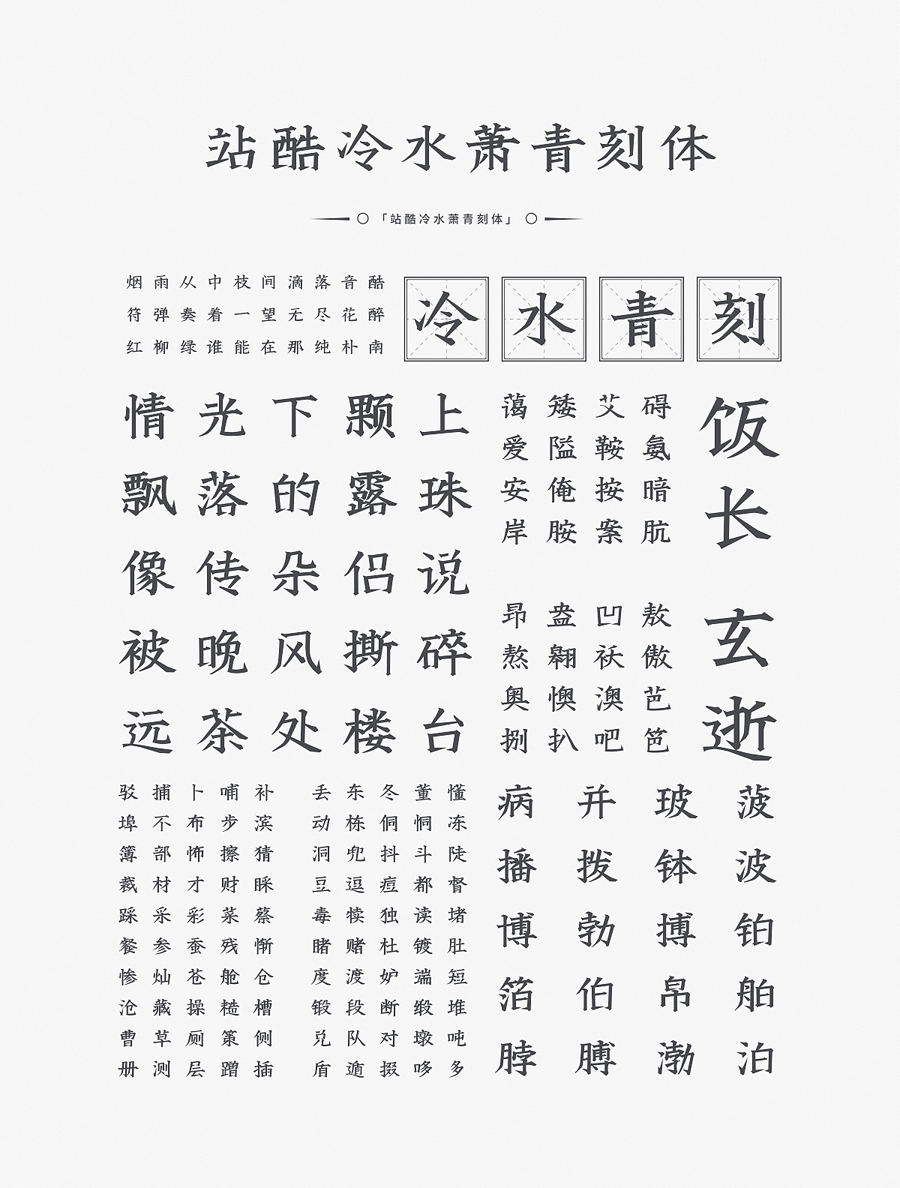 站酷冷水萧青刻体
「站酷冷水萧青刻体」
烟雨从中枝间滴落音酷
符弹奏着一望无尽花醉
红柳绿谁能在那纯朴南
冷水青刻
情光下颗上
飘落的露珠
像传朵侣说
被晚风撕碎
远茶处楼台
蔼矮艾碍
爱隘鞍氨
安俺按暗
岸胺案肮
昂盎凹敖
熬翱袄傲
奥懊澳芭
捌扒吧笆
饭
长
玄
逝
驳捕卜哺补
埠不布步滨
簿部怖擦猜
裁材才财睬
踩采彩菜蔡
餐参蚕残惭
惨灿苍舱仓
沧藏操糙槽
曹草厕策侧
册测层蹭插
丢东冬董懂
动栋侗恫冻
洞兜抖斗陡
豆逗痘都督
毒犊独读堵
睹赌杜镀肚
度渡妒湍短
锻段断缎堆
兑队对墩吨
盾遁掇哆多
病并玻菠
播拨钵波
博勃搏铂
箔伯帛舶
脖膊渤泊